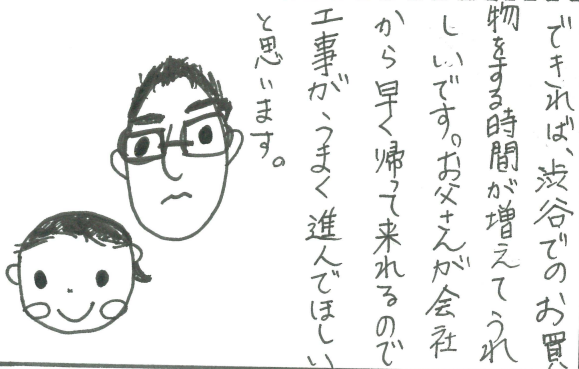 できれば、渋谷でのお買
物をする時間が増えてうれ
しいです。お父さんが会社
から早く帰って来れるので
工事がうまく進んでほしい
と思います。